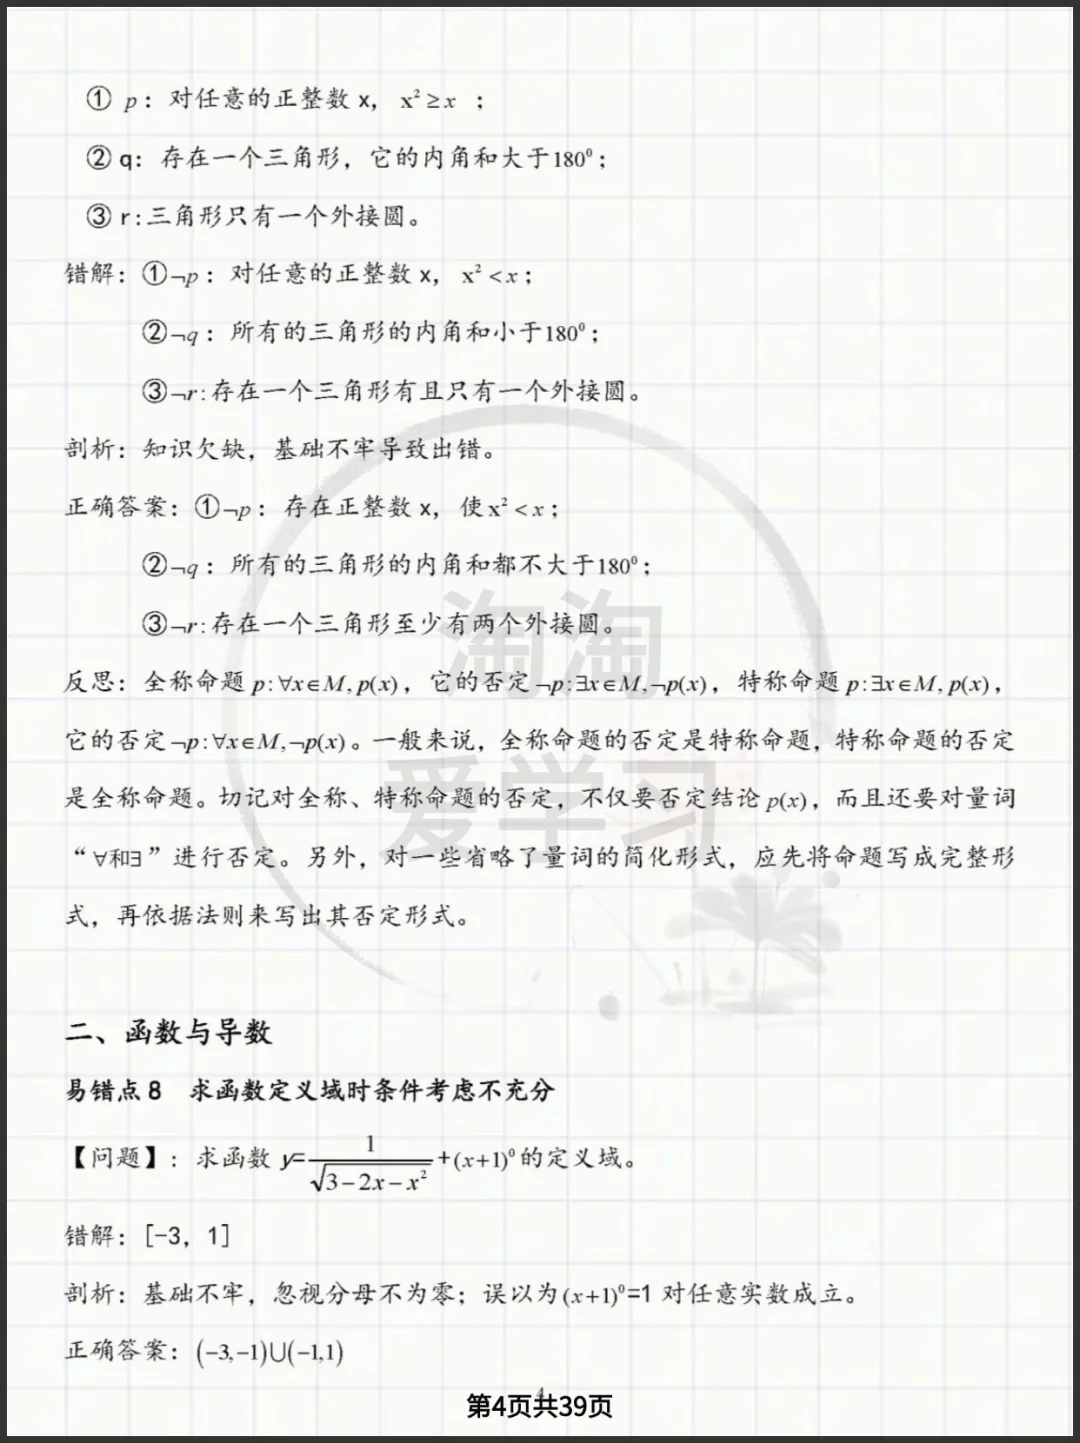 ① p：对任意的正整数 x，x²≥x ；
② q：存在一个三角形，它的内角和大于180⁰；
③ r:三角形只有一个外接圆。
错解：①¬p：对任意的正整数 x，x²<x；
②¬q：所有的三角形的内角和小于180⁰；
③¬r:存在一个三角形有且只有一个外接圆。
剖析：知识欠缺，基础不牢导致出错。
正确答案：①¬p：存在正整数 x，使x²<x；
②¬q：所有的三角形的内角和都不大于180⁰；
③¬r:存在一个三角形至少有两个外接圆。
反思：全称命题 p:∀x∈M, p(x)，它的否定¬p:∃x∈M,¬p(x)，特称命题 p:∃x∈M, p(x)，
它的否定¬p:∀x∈M,¬p(x)。一般来说，全称命题的否定是特称命题，特称命题的否定
是全称命题。切记对全称、特称命题的否定，不仅要否定结论p(x)，而且还要对量词
“∀和∃”进行否定。另外，对一些省略了量词的简化形式，应先将命题写成完整形
式，再依据法则来写出其否定形式。
淘淘
爱学习
二、函数与导数
易错点 8 求函数定义域时条件考虑不充分
【问题】：求函数 y=1/√(3-2x-x²)+(x+1)⁰的定义域。
错解：[-3，1]
剖析：基础不牢，忽视分母不为零；误以为(x+1)⁰=1 对任意实数成立。
正确答案：(-3,-1)∪(-1,1)
4
第4页共39页